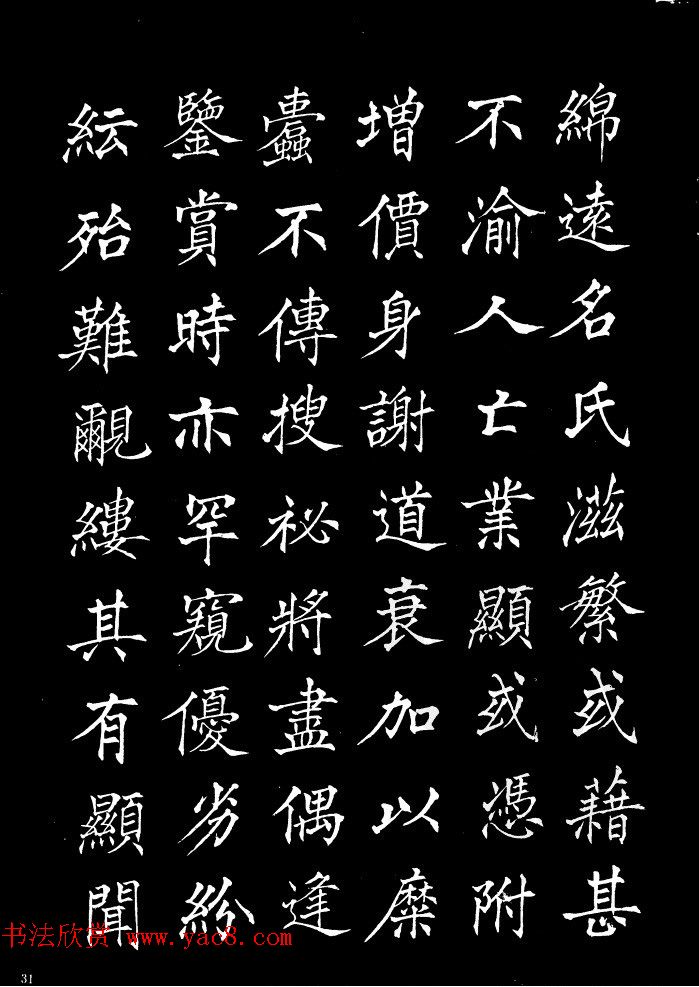 綿遠名氏滋繁或藉甚
不渝人亡業顯或憑附
増價身謝道衰加以糜
蠹不傳搜祕將盡偶逢
鑒賞時亦罕窺優劣紛
紜殆難覼縷其有顯聞
书法欣赏 www.yac8.com
31